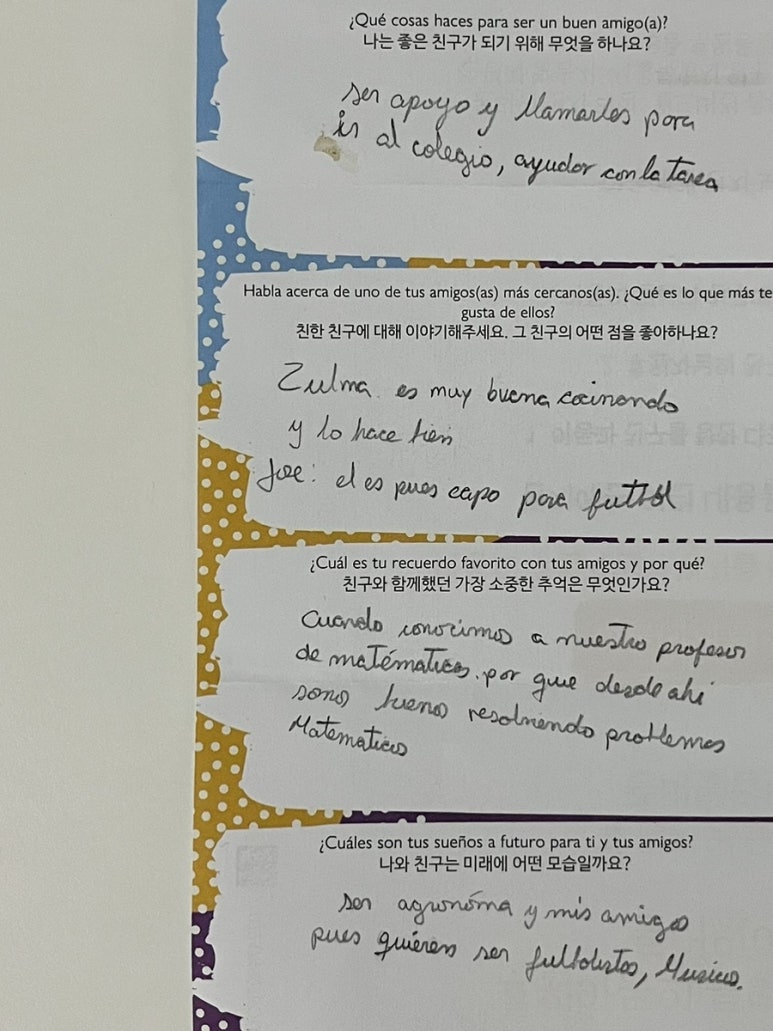 ¿Qué cosas haces para ser un buen amigo(a)?
나는 좋은 친구가 되기 위해 무엇을 하나요?
ser apoyo y llamarles para
ir al colegio, ayudar con la tarea
Habla acerca de uno de tus amigos(as) más cercanos(as). ¿Qué es lo que más te
gusta de ellos?
친한 친구에 대해 이야기해주세요. 그 친구의 어떤 점을 좋아하나요?
Zulma es muy buena cocinando
y lo hace bien
Joe: el es pues capo para futbol
¿Cuál es tu recuerdo favorito con tus amigos y por qué?
친구와 함께했던 가장 소중한 추억은 무엇인가요?
Cuando conocimos a nuestro profesor
de matématicas. por que desde ahi
somos buenos resolviendo problemas
Matematicos
¿Cuáles son tus sueños a futuro para ti y tus amigos?
나와 친구는 미래에 어떤 모습일까요?
ser agronóma y mis amigos
pues quiéren ser futbolistas, Musicos.